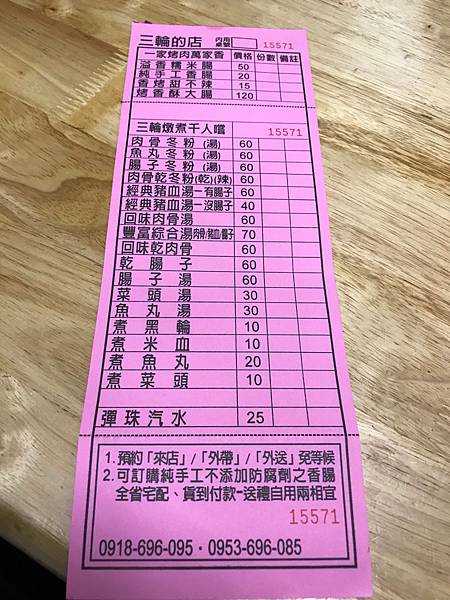 三輪的店 內用 桌號 15571
一家烤肉萬家香 價格 份數 備註
溢香糯米腸 50
純手工香腸 20
香烤甜不辣 15
烤香酥大腸 120
三輪燉煮千人嚐 15571
肉骨冬粉(湯) 60
魚丸冬粉(湯) 60
腸子冬粉(湯) 60
肉骨乾冬粉(乾)(辣) 60
經典豬血湯-有腸子 60
經典豬血湯-沒腸子 40
回味肉骨湯 60
豐富綜合湯肉骨/豬血/腸子 70
回味乾肉骨 60
乾腸子 60
腸子湯 60
菜頭湯 30
魚丸湯 30
煮黑輪 10
煮米血 10
煮魚丸 20
煮菜頭 10
彈珠汽水 25
1. 預約「來店」/「外帶」/「外送」免等候
2. 可訂購純手工不添加防腐劑之香腸
全省宅配、貨到付款-送禮自用兩相宜
15571
0918-696-095・0953-696-085